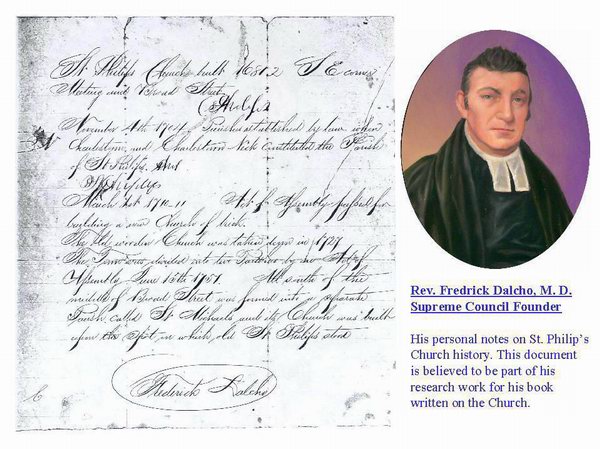 St. Philips Church built 1681.2 S. E corner
Meeting and Broad Street
(St Philips
November 4th 1704. Parishes established by law when
Charleston and Charlestown Neck constituted the Parish
of St Philips.
St Philips
March 1st 1710-11 Act of Assembly passed for
building a new Church of brick.
The Old wooden Church was taken down in 1727
The Town was divided into two Parishes by an Act of
Assembly, June 15th 1751. All south of the
middle of Broad Street was formed into a separate
Parish called St. Michaels and its Church was built
upon the spot in which old St. Philips stood
Frederick Dalcho
Rev. Fredrick Dalcho, M. D.
Supreme Council Founder
His personal notes on St. Philip's
Church history. This document
is believed to be part of his
research work for his book
written on the Church.